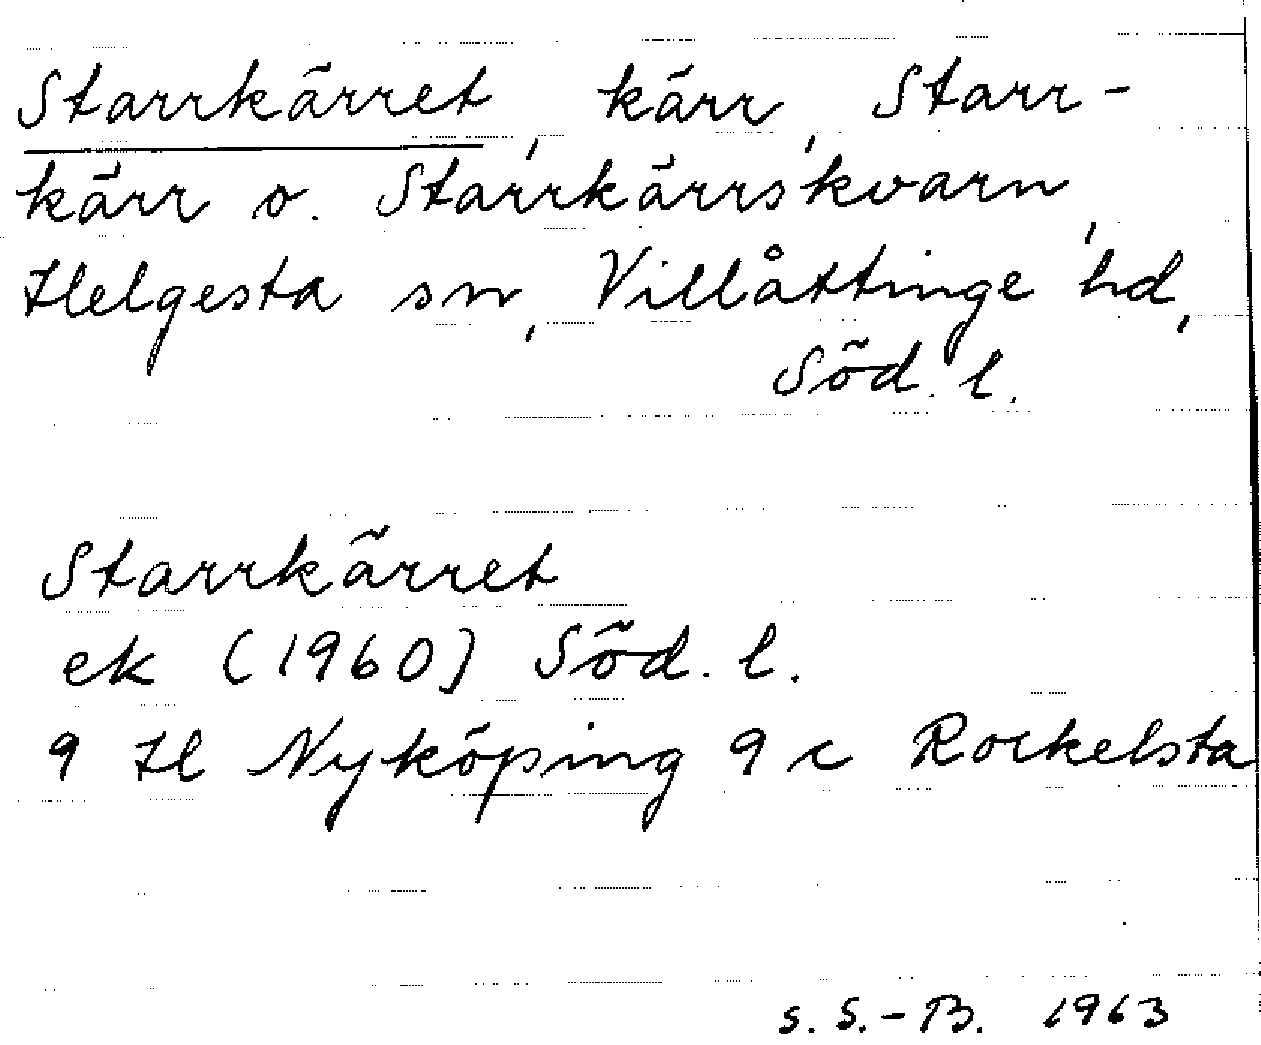 Starrkärret, kärr, Starr-
kärr o. Starrkärrskvarn,
Helgesta sn, Villåttinge hd,
Söd. l.
Starrkärret
ek (1960) Söd. l.
9 H Nyköping 9 c Rockelsta
S. S.-B. 1963